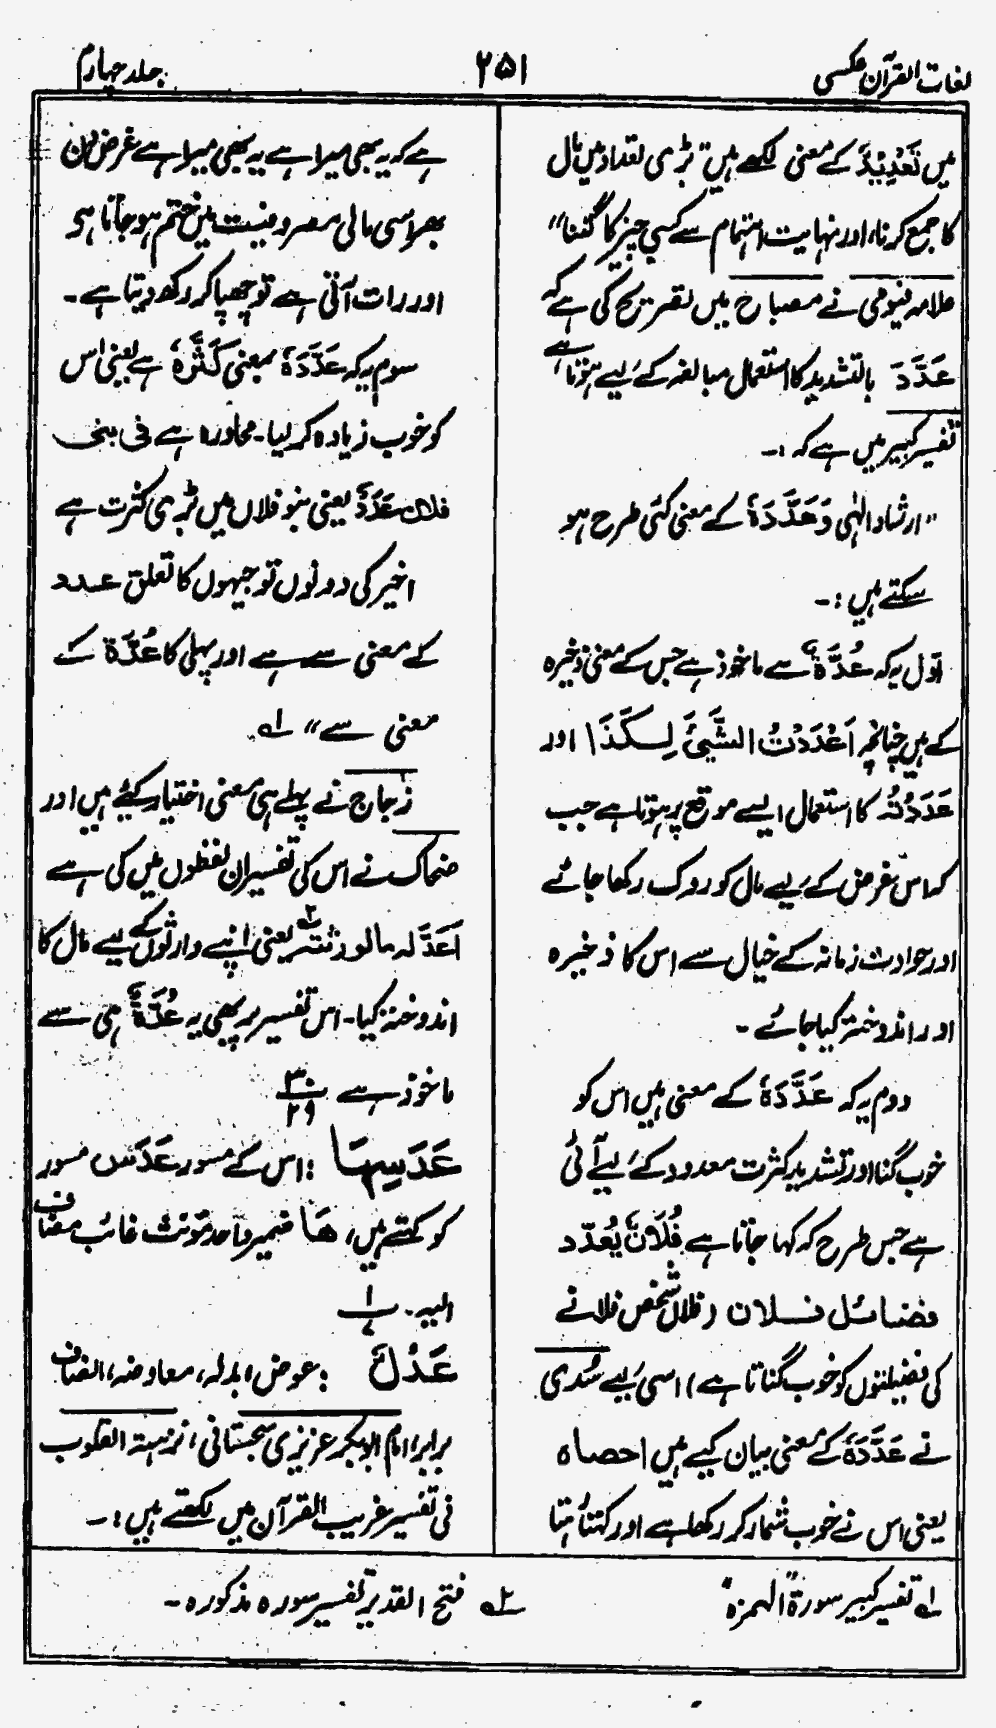 لغات القرآن عکسی
۲۵۱
جلد چہارم
میں تَعْدِیْدٌ کے معنی لکھے ہیں ” بڑی تعداد میں مال
کا جمع کرنا، اور نہایت اہتمام سے کسی چیز کا گننا“
علامہ فیومی نے مصباح میں تصریح کی ہے کہ
عَدَّدَ بالتشدید کا استعمال مبالغہ کے لیے ہوتا ہے
تفسیر کبیر میں ہے کہ :-
”ارشاد الٰہی وَعَدَّدَہٗ کے معنی کئی طرح ہو
سکتے ہیں :-
اوّل یہ کہ عُدَّۃٌ سے ماخوذ ہے جس کے معنی ذخیرہ
کے ہیں چنانچہ اَعْدَدْتُ الشَّیْئَ لِکَذَا اور
عَدَدْتُہ کا استعمال ایسے موقع پر ہوتا ہے جب
کہ اس غرض کے لیے مال کو روک رکھا جائے
اور حوادث زمانہ کے خیال سے اس کا ذخیرہ
اور اندوختہ کیا جائے ۔
دوم یہ کہ عَدَّدَہٗ کے معنی ہیں اس کو
خوب گنا اور تشدید کثرت معدود کے لیے آئی
ہے جس طرح کہ کہا جاتا ہے فُلَانٌ یُعَدّد
فضائل فلان (فلاں شخص فلانے
کی فضیلتوں کو خوب گناتا ہے) اسی لیے سُدی
نے عَدَّدَہٗ کے معنی بیان کیے ہیں احصاہ
یعنی اس نے خوب شمار کر رکھا ہے اور کہتا تھا
ہے کہ یہ بھی میرا ہے یہ بھی میرا ہے غرض دن
بھر اسی مالی مصروفیت میں ختم ہو جاتا ہو
اور رات آتی ہے تو چھپا کر رکھ دیتا ہے ۔
سوم یہ کہ عَدَّدَہٗ بمعنی کَثَّرَہٗ ہے یعنی اس
کو خوب زیادہ کر لیا۔ محاورہ ہے فی بنی
فلان عَدَدٌ یعنی بنو فلاں میں بڑی کثرت ہے
اخیر کی دونوں توجیہوں کا تعلق عدد
کے معنی سے ہے اور پہلی کا عُدَّۃ کے
معنی سے“ ۱ے
زجاج نے پہلے ہی معنی اختیار کیے ہیں اور
ضحاک نے اس کی تفسیر ان لفظوں میں کی ہے
اَعَدَّ لہ مالو رثتہ ۲ے یعنی اپنے وارثوں کے لیے مال کا
اندوختہ کیا۔ اس تفسیر پر بھی یہ عُدَّۃٌ ہی سے
ماخوذ ہے ۳۰/۲۹
عَدَسِہَا : اس کے مسور عَدَس مسور
کو کہتے ہیں، ھَا ضمیر واحد مؤنث غائب مضاف
الیہ۔ ۱/۷
عَدْلٌ : عوض، بدلہ، معاوضہ، انصاف
برابر، امام ابوبکر عزیزی سجستانی، نزہتہ القلوب
فی تفسیر غریب القرآن میں لکھتے ہیں :-
۱ے تفسیر کبیر سورۃ ”الہمزہ“
۲ے فتح القدیر تفسیر سورہ مذکورہ ۔